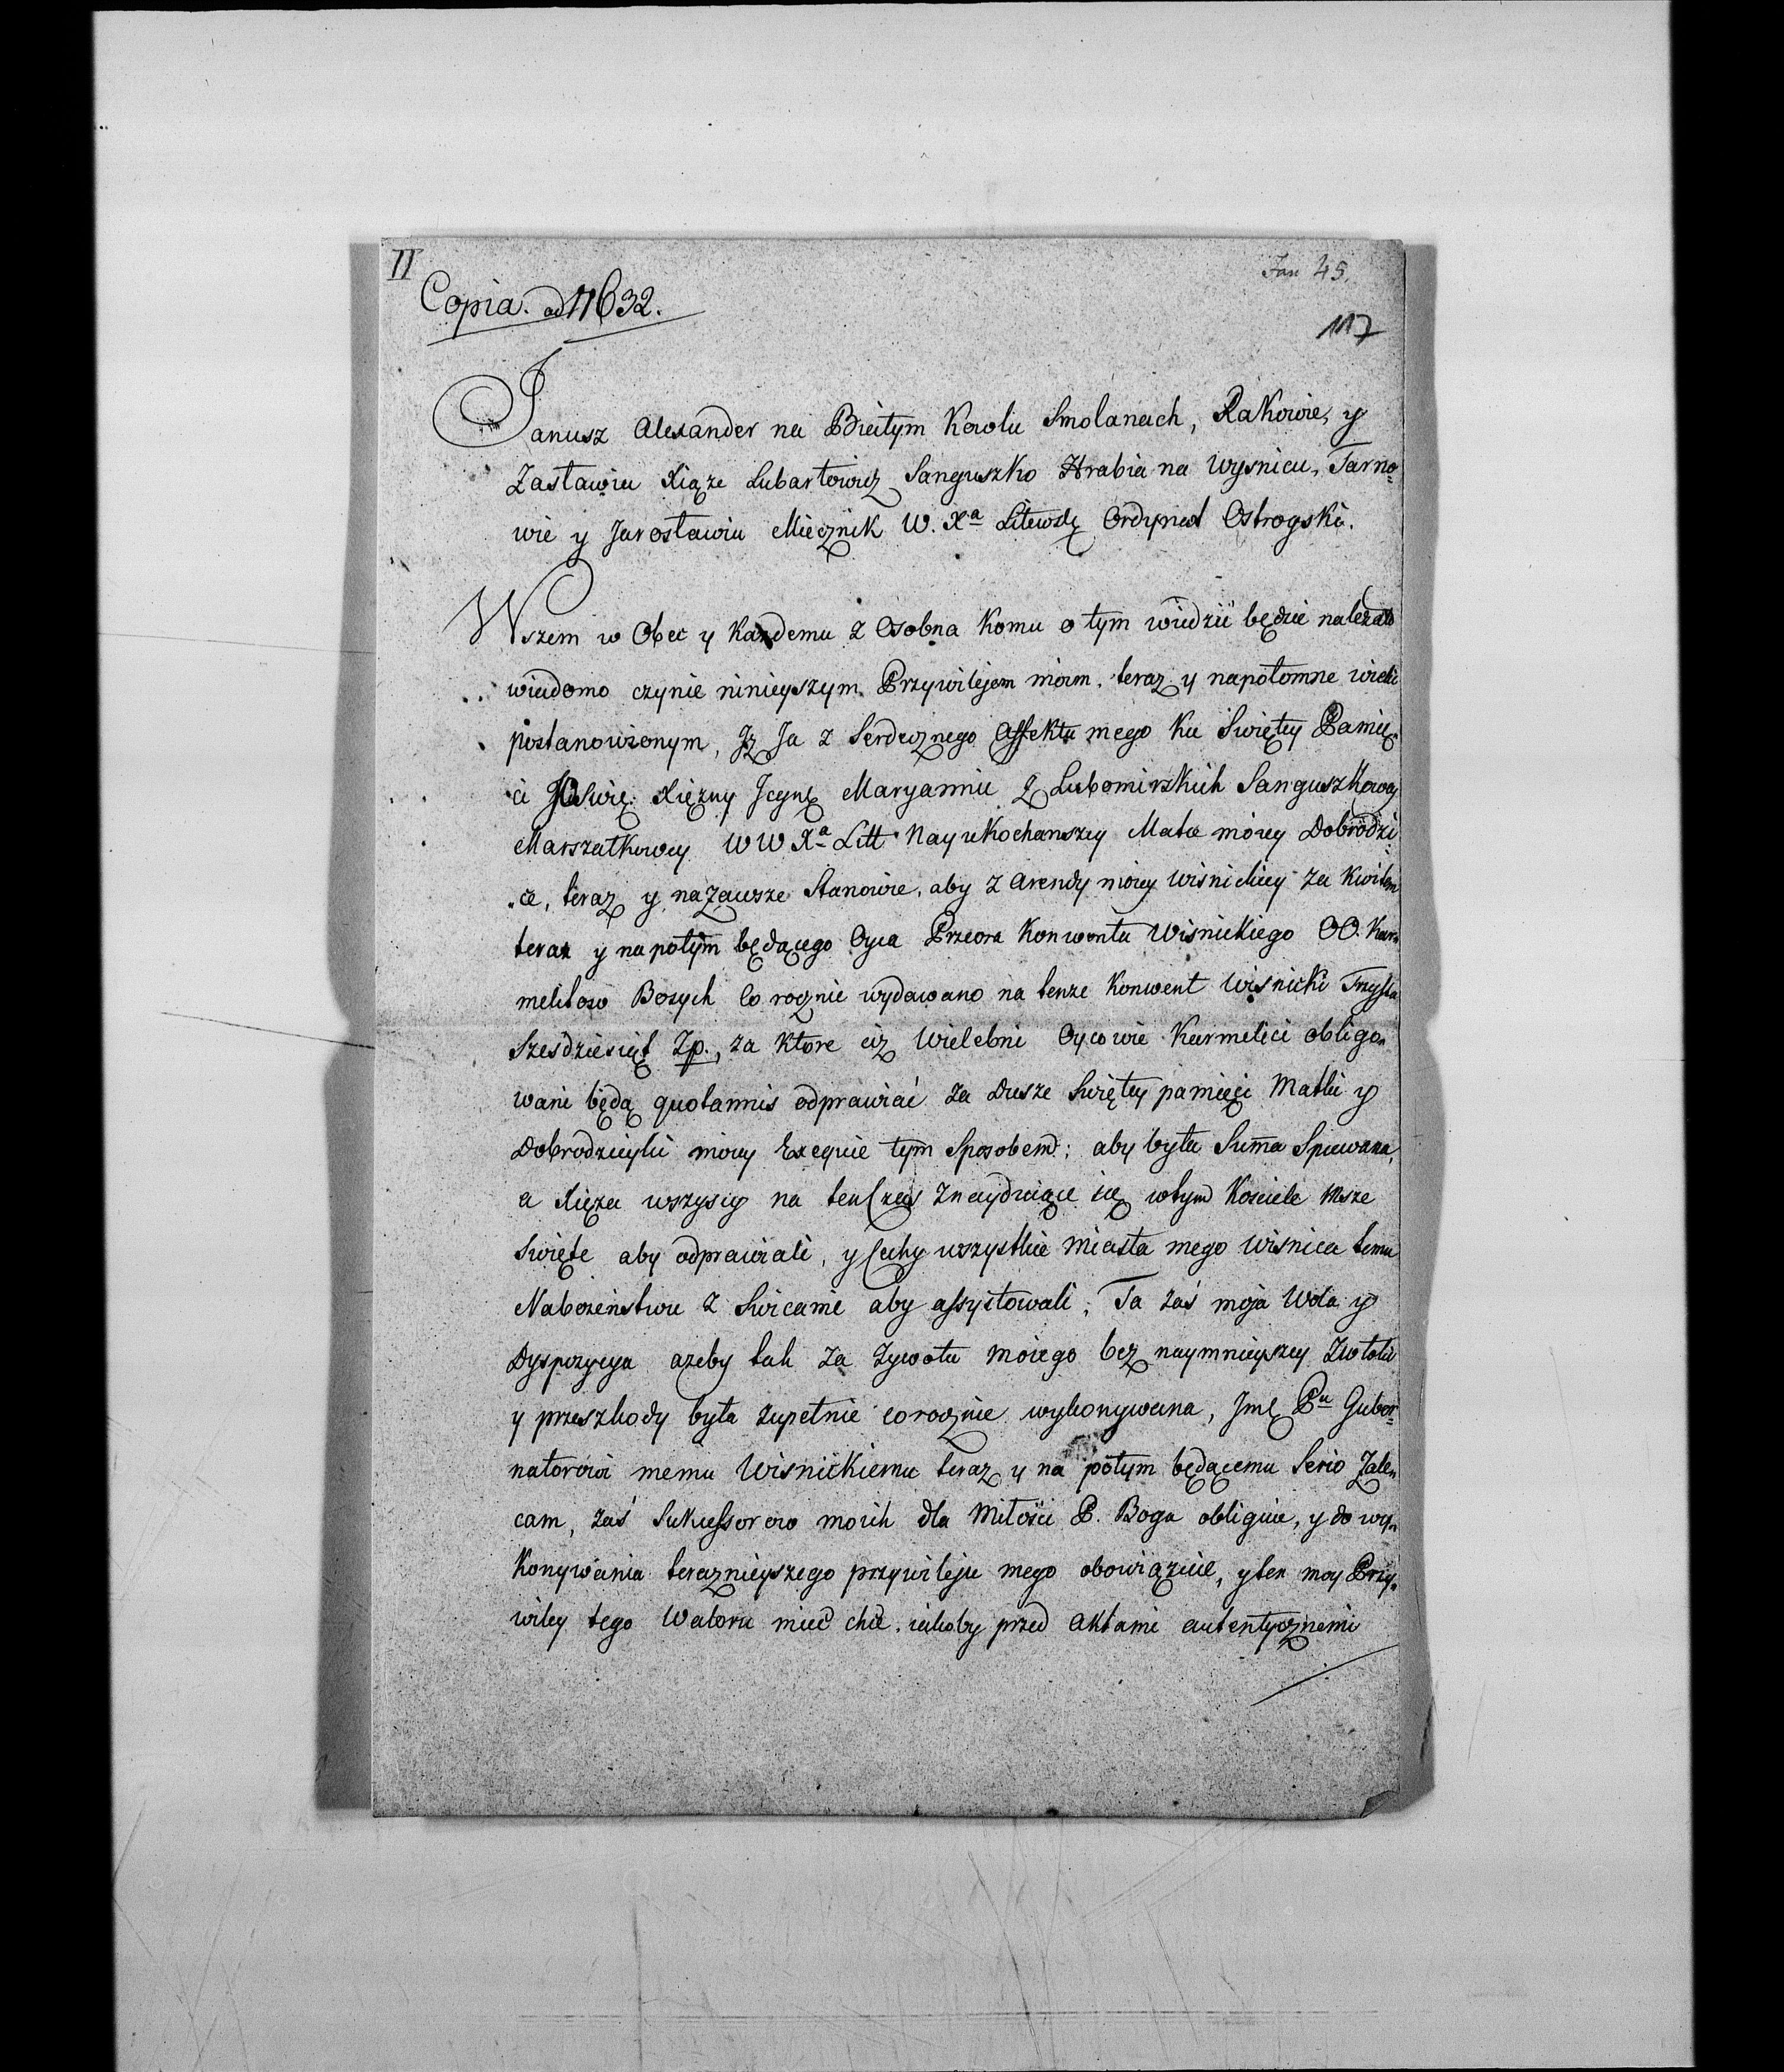 II
Jan 45.
Copia. ad 11632.
117
Janusz Alexander na Białym Kowlu Smolanach, Rakowie, y
Zasławiu Xiąże Lubartowicz Sanguszko Hrabia na Wysnicu, Tarno=
wie y Jarosławiu Miecznik W. Xa Litewsk Ordynat Ostrogski.
Wszem w Obec y Każdemu z Osobna Komu o tym widzić będzie należało
wiadomo czynie ninieyszym Przywilejem moim, teraz y napotomne wieki
postanowionym, Jz Ja z Serdecznego Affektu mego Ku Swiętey Pamię„
ci JOSwię. Xiężny Jcyni Maryannie z Lubomirskich Sanguszkowey
Marszałkowey W W Xa Litt Nayukochanszey Matce mojey Dobrodzi„
„ce, teraz y nazawsze Stanowie, aby z Arendy mojey Wisnickiey za Kwitem
teraz y napotym będącego Oyca Przeora Konwentu Wisnickiego OO. Kar„
melitow Bosych Co rocznie wydawano na tenże Konwent Wisnicki Trysta
Szesdziesiąt Zp., za Ktore ciż Wielebni Oycowie Karmelici obligo„
wani będą quotannis odprawiać za Dusze Swiętey pamięci Matki y
Dobrodzieyki mojey Exequie tym Sposobem: aby była Suma Spiewana,
a Xięża wszyscy na ten Czas Znayduiące się wtym Kosciele Msze
Swięte aby odprawiali, y Cechy wszystkie Miasta mego Wisnica temu
Nabożeństwu z Swicami aby assystowali; Ta zaś moja Wola y
Dyspozycya ażeby tak za Zywota moiego bez naymnieyszey Zwłoki
y przeszkody była zupełnie corocznie wykonywana, Jmć Pu Guber=
natorowi memu Wisnickiemu teraz y na potym będącemu Serio Zale„
cam, zaś Sukcessorow moich dla Miłości P. Boga obliguie, y do wy„
Konywania terazniejszego przywileju mego obowiązuie, y ten moy Przy„
wiley tego Waloru mieć chcę, iakoby przed Aktami autentycznemi